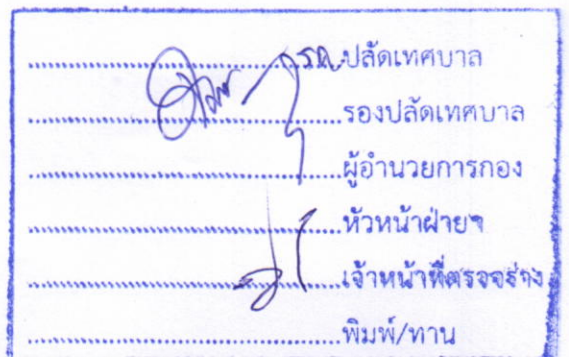 ................รก.ปลัดเทศบาล
................รองปลัดเทศบาล
................ผู้อำนวยการกอง
................หัวหน้าฝ่ายฯ
................เจ้าหน้าที่ตรวจร่าง
................พิมพ์/ทาน